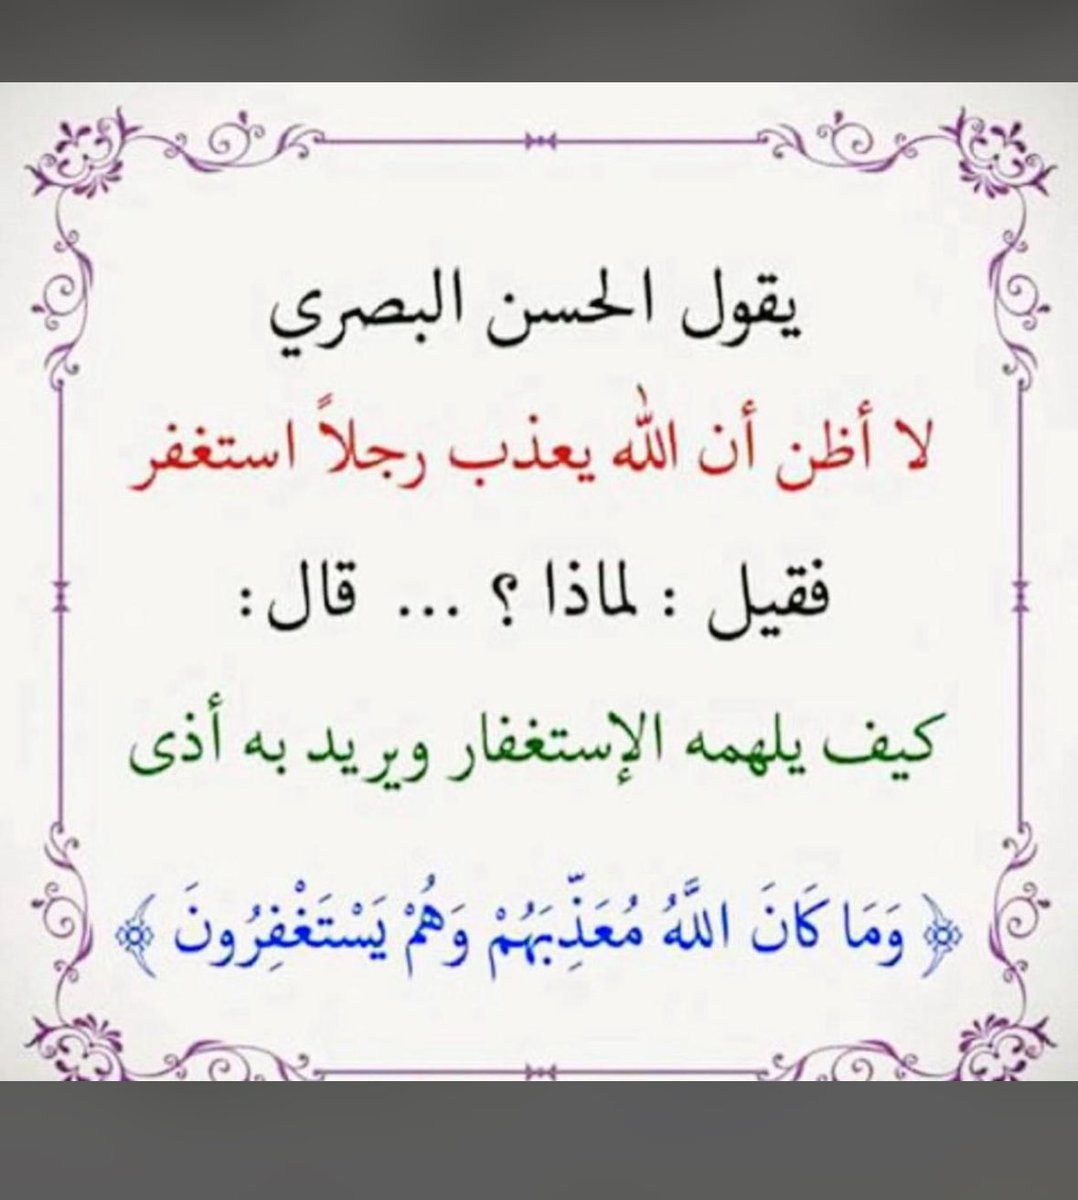 يقول الحسن البصري
لا أظن أن الله يعذب رجلاً استغفر
فقيل : لماذا ؟ ... قال:
كيف يلهمه الإستغفار ويريد به أذى
﴿ وَمَا كَانَ اللَّهُ مُعَذِّبَهُمْ وَهُمْ يَسْتَغْفِرُونَ ﴾